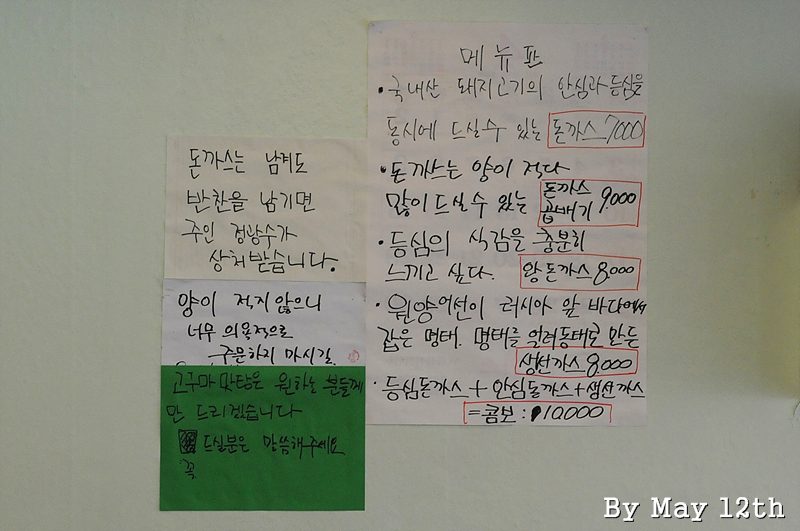 메뉴판
• 국내산 돼지고기의 안심과 등심을
동시에 드실수 있는 돈까스 7000
• 돈까스는 양이 적다
많이 드실수 있는 돈까스 곱배기 9000
• 등심의 식감을 충분히
느끼고 싶다. 왕돈까스 8000
• 원양어선이 러시아 앞 바다에서
잡은 명태. 명태를 얼려 동태로 만든
생선까스 8,000
• 등심돈까스 + 안심돈까스 + 생선까스
= 콤보 : 10,000
돈까스는 남겨도
반찬을 남기면
주인 정광수가
상처받습니다.
양이 적지않으니
너무 의욕적으로
주문하지 마시길.
고구마 맛탕은 원하는 분들께
만 드리겠습니다
드실분은 말씀해주세요
꼭
By May 12th